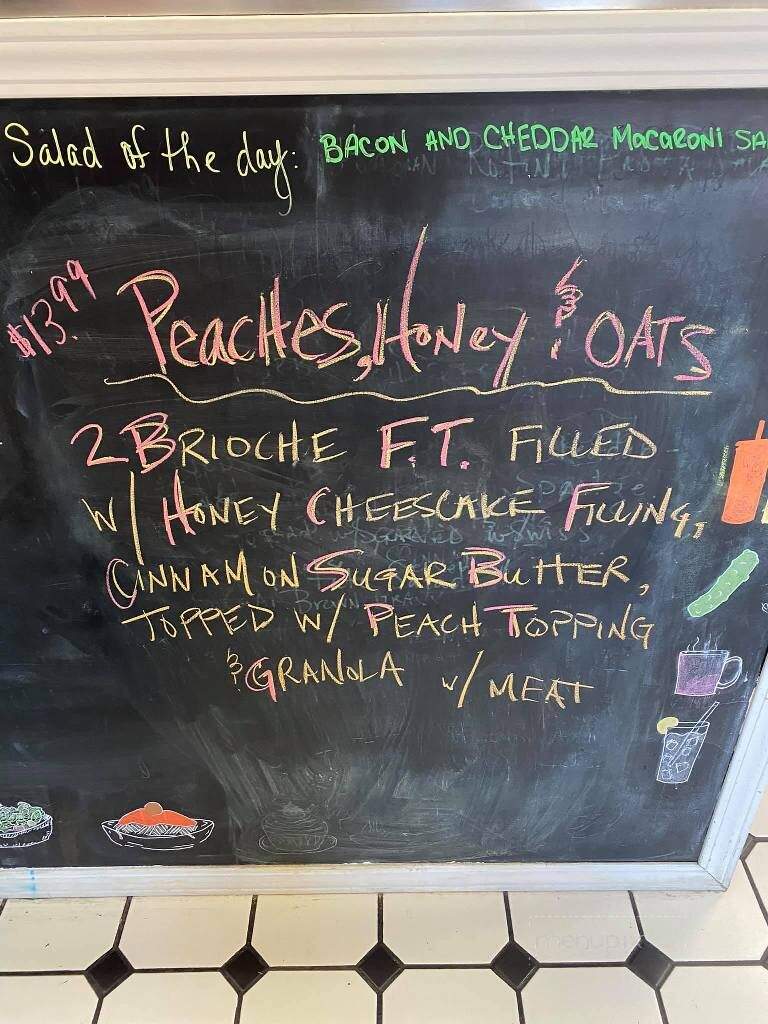 Salad of the day: BACON AND CHEDDAR MACARONI SA
$13.99 PEACHES, HONEY & OATS
2 BRIOCHE F.T. FILLED
W/ HONEY CHEESCAKE FILLING,
CINNAMON SUGAR BUTTER,
TOPPED W/ PEACH TOPPING
& GRANOLA w/ MEAT